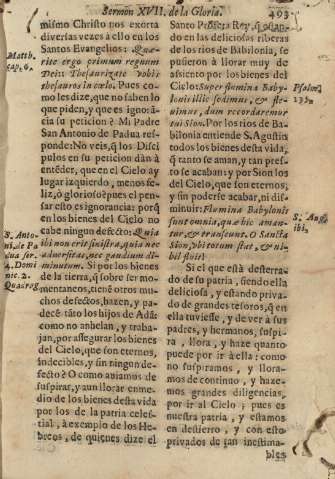 Sermón XVII. de la Gloria. 493
mismo Christo nos exorta
diversas vezes à ello en los
Santos Evangelios: Quæ-
rite ergo primum regnum
Dei: Thesaurizate vobis
thesauros in cœlo. Pues co-
mo les dize, que no saben lo
que piden, y que es ignorā-
cia su peticion? Mi Padre
San Antonio de Padua res-
ponde: No veis, q los Disci
pulos en su peticion dàn à
entēder, que en el Cielo ay
lugar izquierdo, menos fe-
liz, ò glorioso? pues el pen-
sar esto es ignorancia: porq̃
en los bienes del Cielo no
cabe ningun defecto: Quia
ibi non erit sinistra, quia nec
adversitas, nec gaudium di-
minutum. Si por los bienes
de la tierra, q̃ sobre ser mo-
mentaneos, tienē otros mu-
chos defectos, hazen, y pa-
decē tāto los hijos de Adā:
como no anhelan, y traba-
jan, por assegurar los bienes
del Cielo, que son eternos,
indecibles, y sin ningun de-
fecto? O como aviamos de
suspirar, y aun llorar enme-
dio de los bienes desta vida
por los de la patria celes-
tial, à exemplo de los He-
breos, de quienes dize el
Matth.
cap. 6.
S. Anto-
ni. de Pa
dua ser.
4. Domi
nic. 2.
Quadrag.
Santo Profeta Rey, q̃ estan-
do en las deliciosas riberas
de los rios de Babilonia, se
pusieron à llorar muy de
assiento por los bienes del
Cielo: Super flumina Baby-
lonis illic sedimus, & fle-
vimus, dum recordaremur
tui Sion. Por los rios de Ba-
bilonia entiende S. Agustin
todos los bienes desta vida,
q̃ tanto se aman, y tan pres-
to se acaban: y por Sion los
del Cielo, que son eternos,
y sin poderse acabar, ni dis-
minuir: Flumina Babylonis
sunt omnia, quæ hic aman-
tur, & transeunt. O Sancta
Sion, ubi totum stat, & ni-
hil fluit!
Si el que està desterra-
do de su patria, siendo ella
deliciosa, y estando priva-
do de grandes tesoros, q̃ en
ella tuviesse, y de ver à sus
padres, y hermanos, suspi-
ra, llora, y haze quanto
puede por ir à ella: como
no suspiramos, y llora-
mos de continuo, y haze-
mos grandes diligencias,
por ir al Cielo; pues es
nuestra patria, y estamos
en destierro, y con esto
privados de tan inestima-
bles
Psalm.
S. Aug.
ibi,